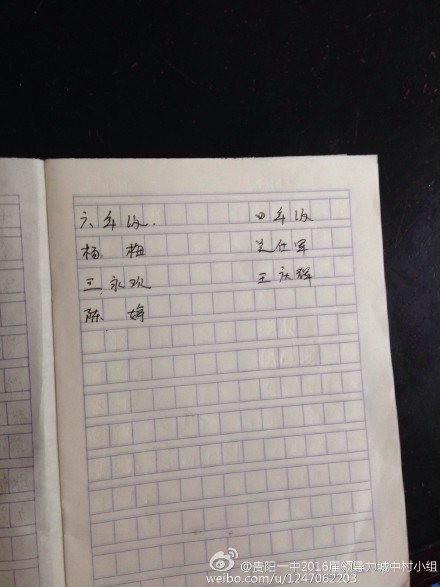 六年级. 四年级
杨梅 兰仕军
王永欢 王庆辉
陈婷
@贵阳一中2016届领导力城中村小组
weibo.com/u/1247062203